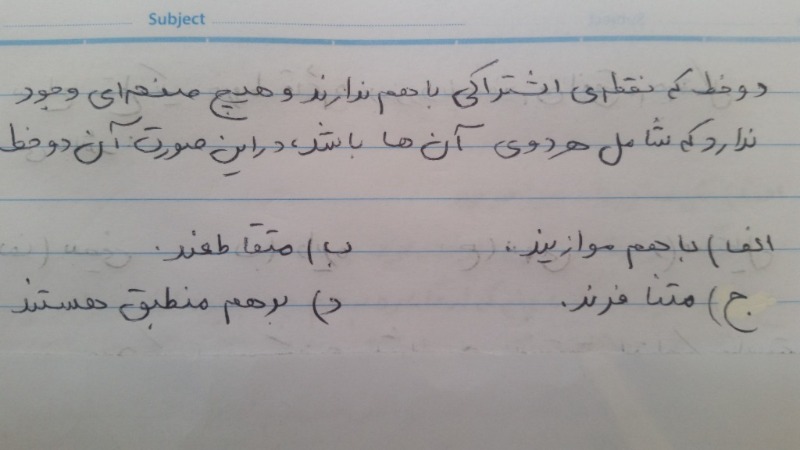 Subject
دو خط که نقطه‌ی اشتراکی با هم ندارند و هیچ صفحه‌ای وجود
ندارد که شامل هر دوی آن ها باشد، در این صورت آن دو خط
الف) با هم موازیند. ب) متقاطعند.
ج) متنافرند. د) بر هم منطبق هستند